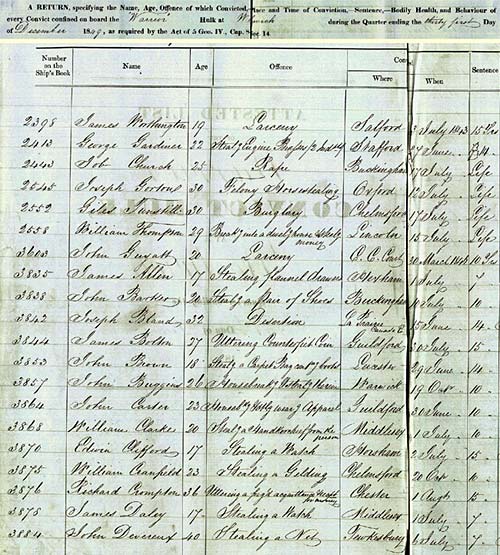 A RETURN, specifying the Name, Age, Offence of which Convicted, Place and Time of Conviction,—Sentence,—Bodily Health, and Behaviour of
every Convict confined on board the Warrior Hulk at Woolwich during the Quarter ending the thirty first Day
of December 1849, as required by the Act of 5 Geo. IV., Cap. 14
Number on the Ship's Book Name Age Offence Where When Sentence
2398 James Worthington 19 Larceny Salford 3 July 1843 15 Yrs
2413 George Gardiner 22 Stealg Engine Stafford 27 June
2443 Job Church 25 Rape Buckingham 17 July Life
2545 Joseph 30 Felony Horsestealing Oxford 12 July Life
2552 Giles 30 Burglary Chelmsford 17 July Life
2558 William Thompson 29 Breakg into a dwelg house & stealg money Lincoln 15 July Life
3603 John 20 Larceny C. C. Court 30 March 10 Yrs
3835 James Allen 17 Stealing flannel drawers Hexham 1 July 7
3838 John Barker 20 Stealg a Pair of Shoes Buckingham July 10
3842 Joseph Bland 32 Desertion La Prairie Canada E. 15 June 14
3844 James Bolton 27 Uttering Counterfeit Coin Guildford 30 July 15
3853 John Brown 18 Stealg a Carpet Bag Leicester 29 June 14
3857 John Buggins 26 Housebreakg & stealg therein Warwick 19 Octr 10
3864 John Carter 23 Housebg & stealg wearg Apparel Guildford 30 June 10
3868 William Clarke 20 Stealg a Handkerchief from the person Middlesex 1 July 10
3870 Edwin Clifford 17 Stealing a Watch Horsham 2 July 15
3875 William Cranfield 23 Stealing a Gelding Chelmsford 20 Octr 10
2876 Richard Crompton 36 Uttering a forged Chester 1 Augt 15
3878 James Daley 17 Stealing a Watch Middlesex 1 July 7
3884 John Devereux 40 Stealing a Net Tewkesbury 6 July 7